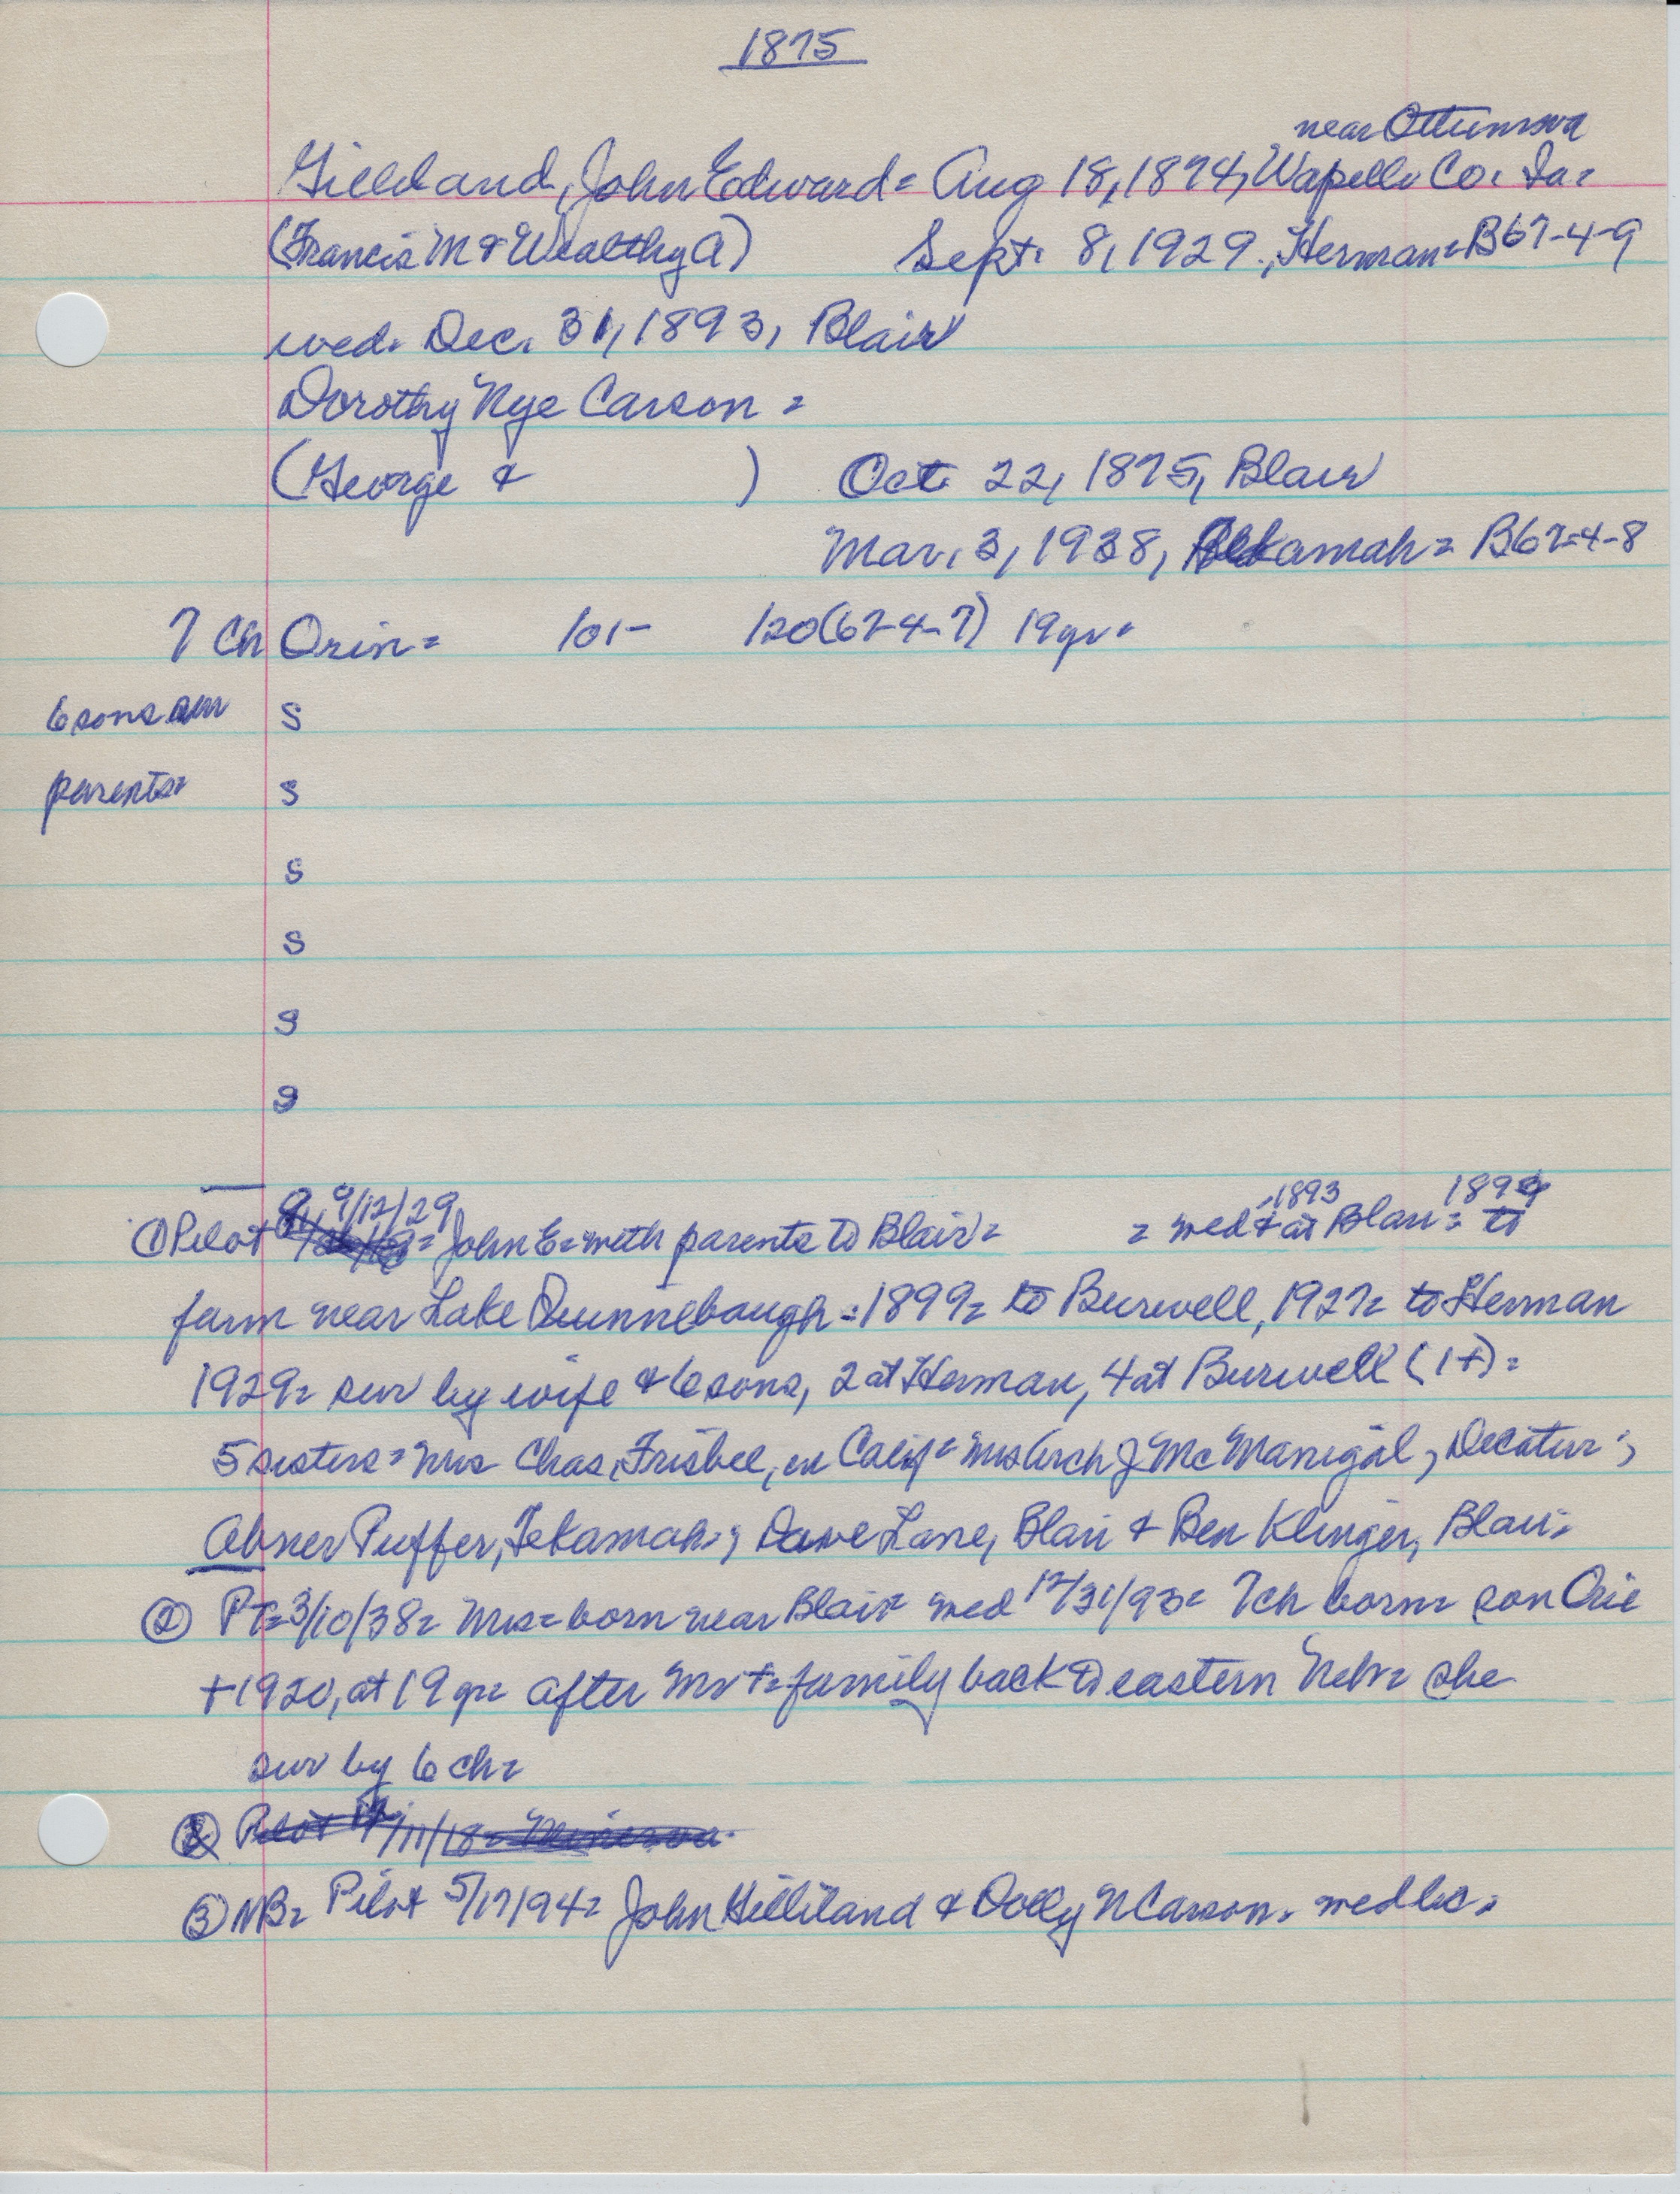 1875
near Ottumwa
Gilliland, John Edward = Aug 18, 1874, Wapello Co. Ia =
(Francis M & Wealthy A) Sept. 8, 1929., Herman = B67-4-9
wed. Dec. 31, 1893, Blair
Dorothy Nye Carson =
(George & ) Oct. 22, 1875, Blair
Mar. 3, 1938, Tekamah = B67-4-8
7 Ch Orin = /01- /20 (67-4-7) 19yr.
6 sons sur S
parents = S
S
S
S
S
① Pilot 9/12/29 = John E = with parents to Blair = = wed + at Blair = to
1893 1894
farm near Lake Quinnebaugh = 1899 = to Burwell, 1927 = to Herman
1929 = sur by wife & 6 sons, 2 at Herman, 4 at Burwell (1+) =
5 sisters = Mrs Chas. Frisbee, in Calif = Mrs Arch J McManigal, Decatur;
Abner Puffer, Tekamah; Dave Lane, Blair & Ben Klinger, Blair =
② PT = 3/10/38 = Mrs = born near Blair = wed 12/31/93 = 7 ch born = son Orie
+ 1920, at 19 yr = after Mr + = family back to eastern Nebr = she
sur by 6 ch =
Pilot /11/18 =
③ NB = Pilot 5/17/94 = John Gilliland & Dolly N Carson. wed lic.